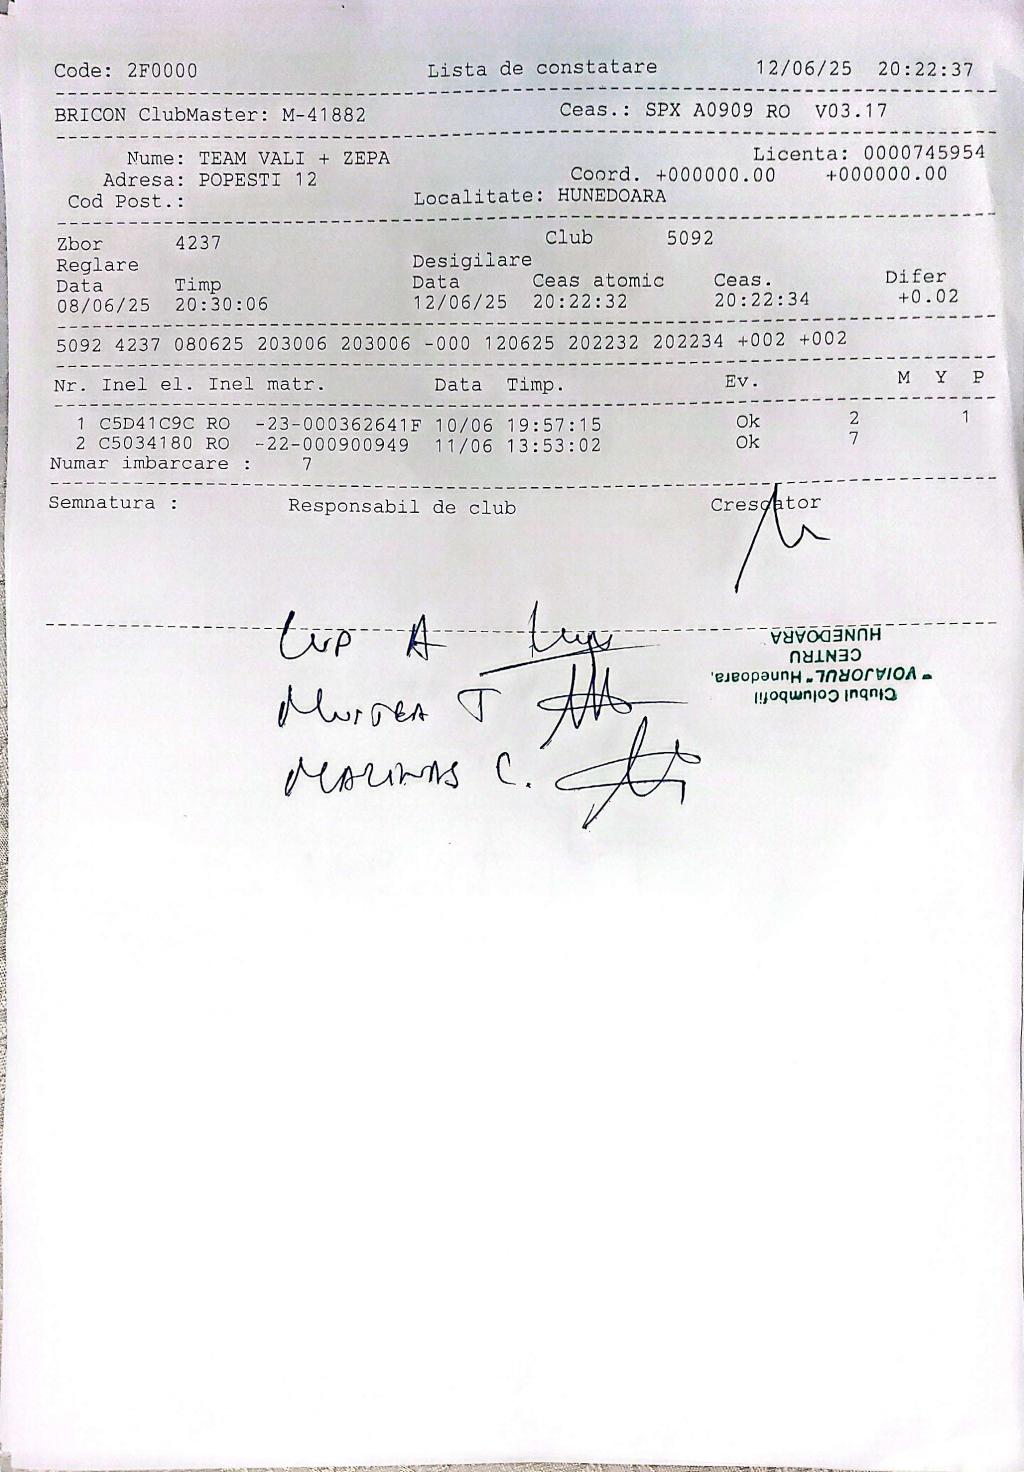 Code: 2F0000 Lista de constatare 12/06/25 20:22:37
BRICON ClubMaster: M-41882 Ceas.: SPX A0909 RO V03.17
Nume: TEAM VALI + ZEPA Licenta: 0000745954
Adresa: POPESTI 12 Coord. +000000.00 +000000.00
Cod Post.: Localitate: HUNEDOARA
Zbor 4237 Club 5092
Reglare Desigilare
Data Timp Data Ceas atomic Ceas. Difer
08/06/25 20:30:06 12/06/25 20:22:32 20:22:34 +0.02
5092 4237 080625 203006 203006 -000 120625 202232 202234 +002 +002
Nr. Inel el. Inel matr. Data Timp. Ev. M Y P
1 C5D41C9C RO -23-000362641F 10/06 19:57:15 Ok 2 1
2 C5034180 RO -22-000900949 11/06 13:53:02 Ok 7
Numar imbarcare : 7
Semnatura : Responsabil de club Crescator
Lup A
T
MARINAS C.
Clubul Columbofil
"VOIAJORUL" Hunedoara.
CENTRU
HUNEDOARA